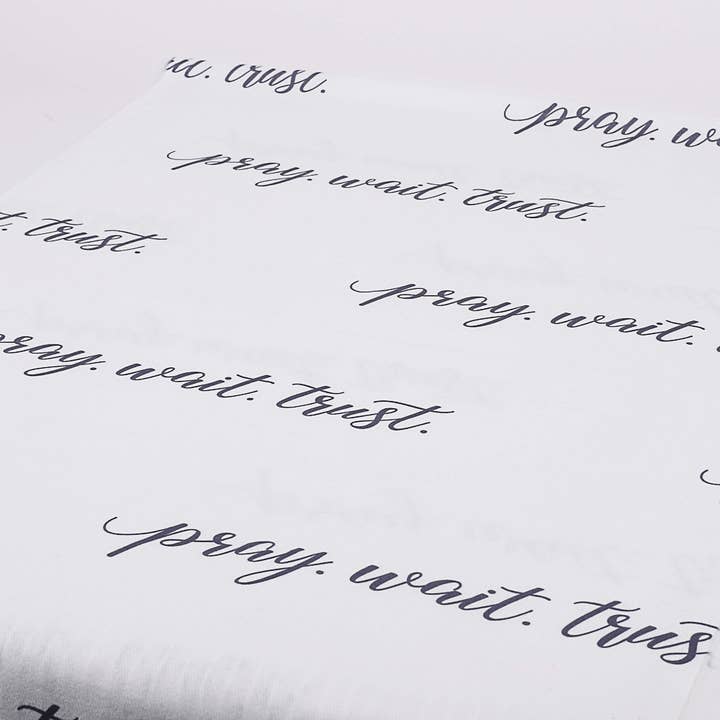 trust.
pray.
pray. wait. trust.
trust.
pray. wait.
pray. wait. trust.
pray. wait. trus